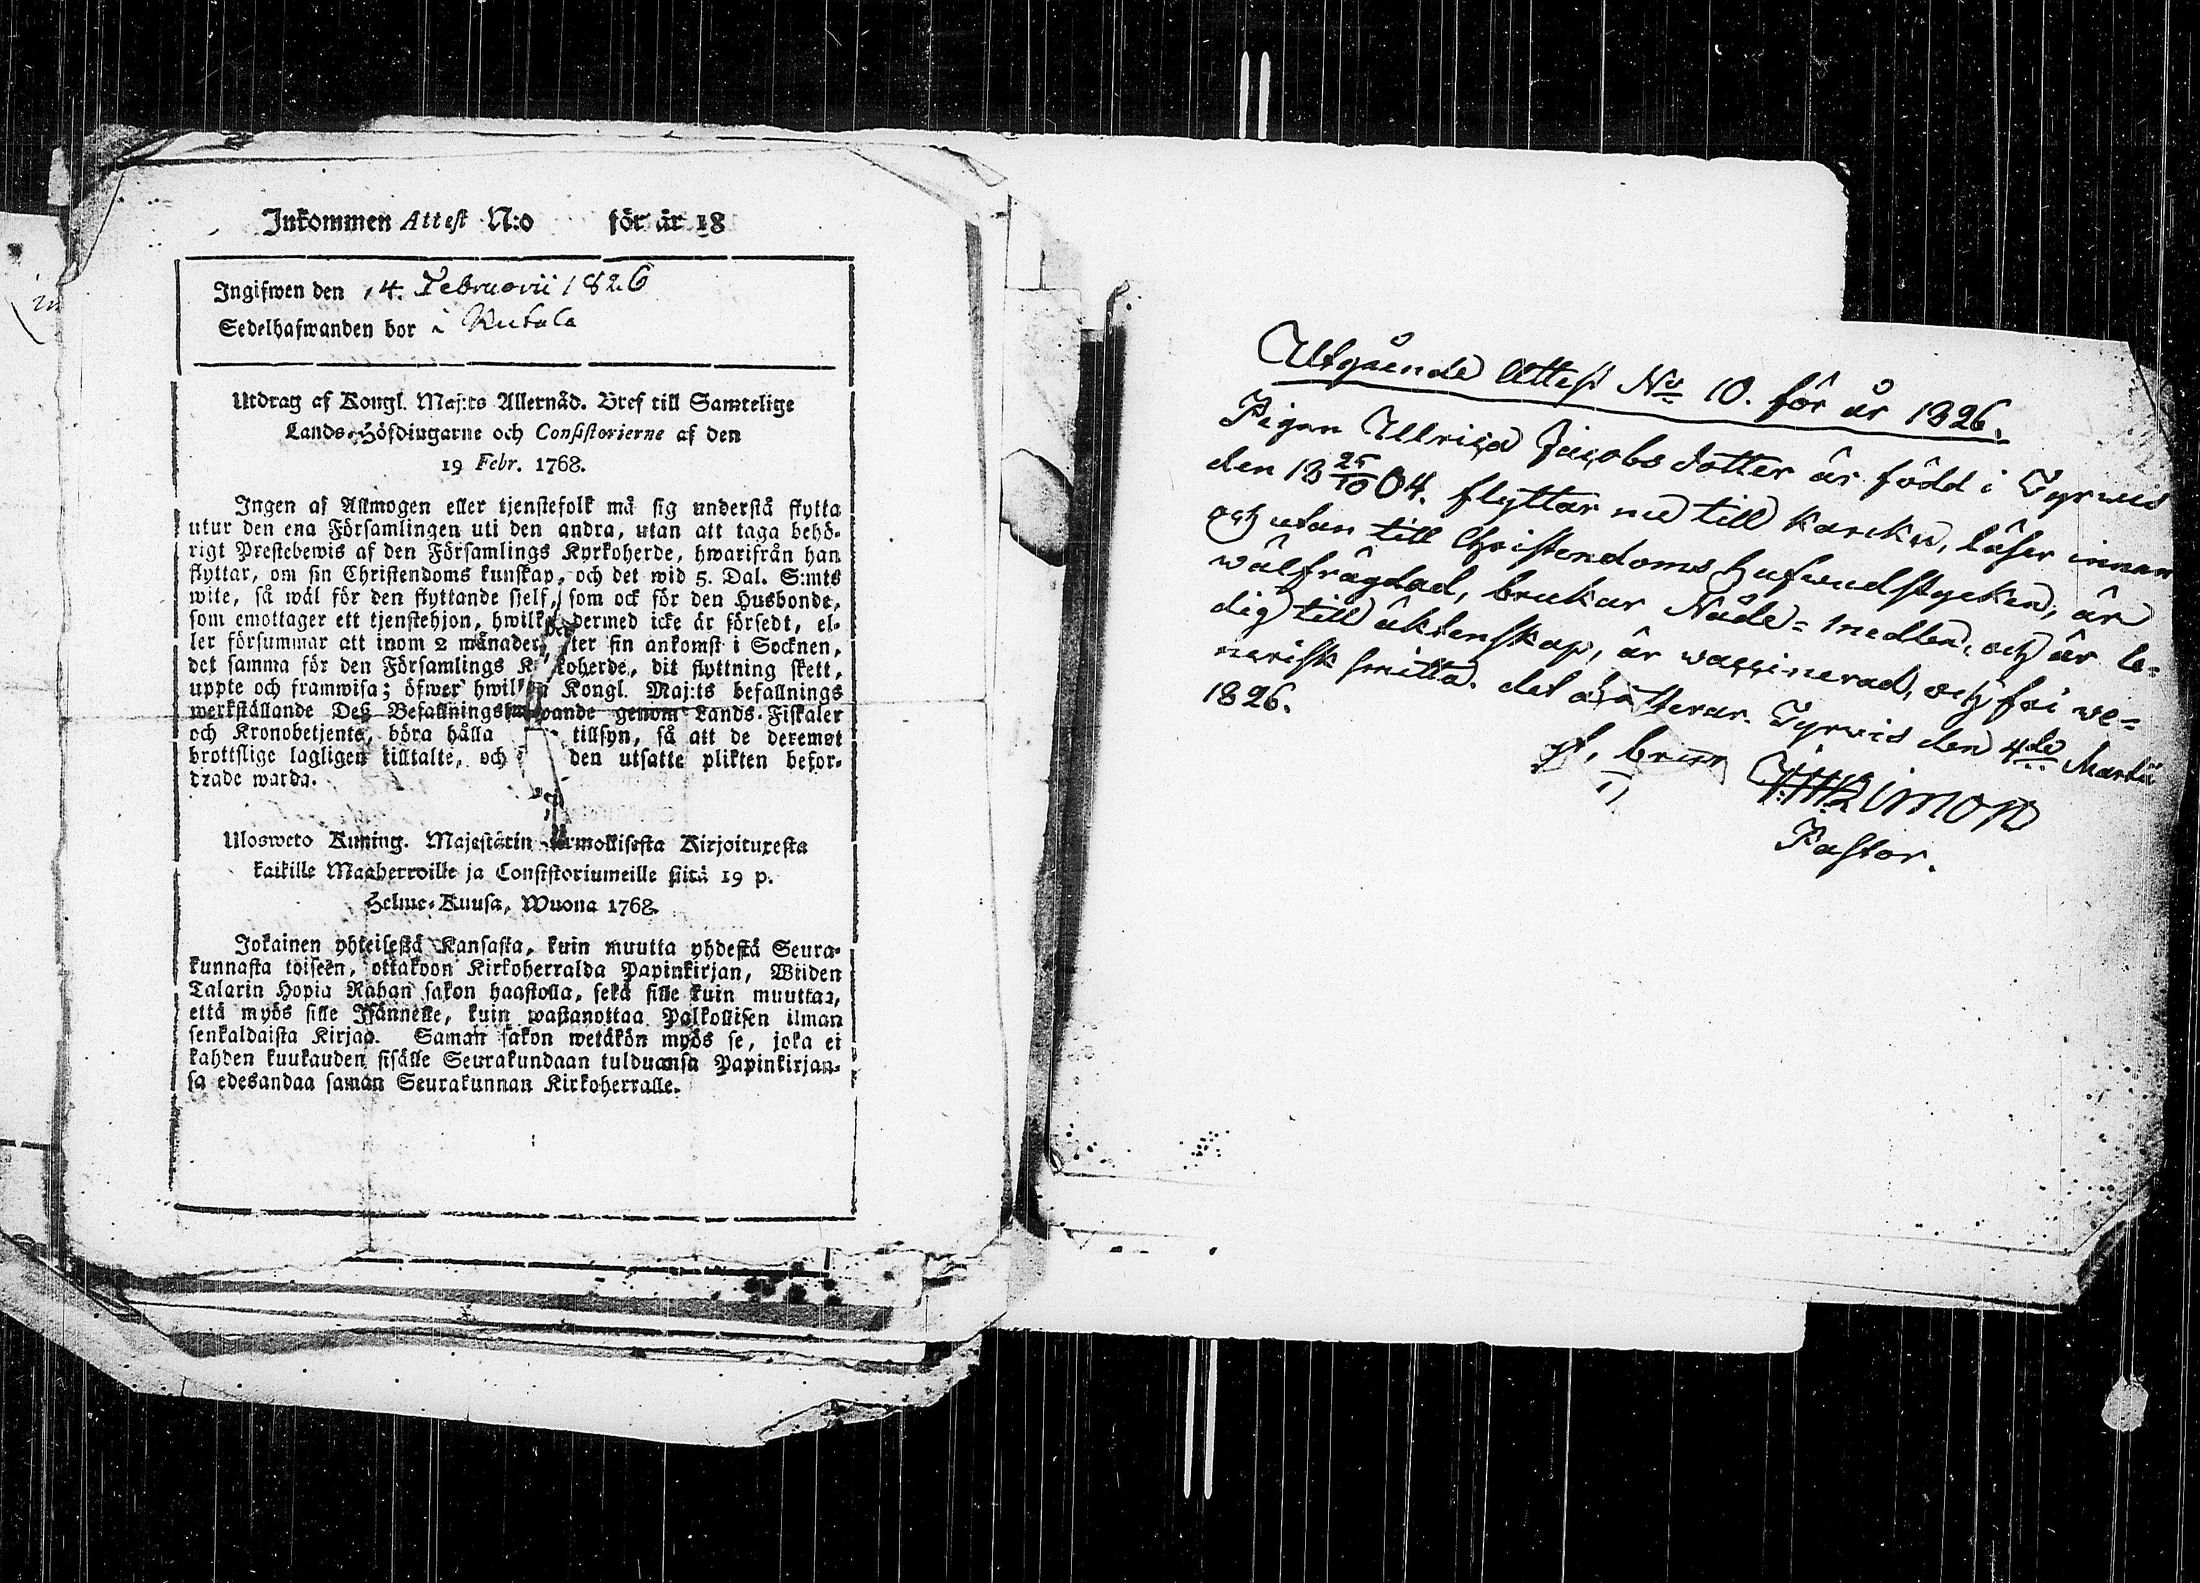 Inkommen Attest N:o för år 18
Ingifwen den 14. Februarii 1826
Sedelhafwanden bor i Kutala
Utdrag af Kongl. Maj:ts Allernåd. Bref till Samtelige
Lands-Höfdingarne och Consistorierne af den
19 Febr. 1768.
Ingen af Allmogen eller tjenstefolk må sig understå flytta
utur den ena Församlingen uti den andra, utan att taga behö-
rigt Prestebewis af den Församlings Kyrkoherde, hwarifrån han
flyttar, om sin Christendoms kunskap, och det wid 5. Dal. S:mts
wite, så wäl för den flyttande sjelf, som ock för den Husbonde,
som emottager ett tjenstehjon, hwilk dermed icke är försedt, el-
ler försummar att inom 2 månader ter sin ankomst i Socknen,
det samma för den Församlings K koherde, dit flyttning skett,
uppte och framwisa; öfwer hwil Kongl. Maj:ts befallnings
werkställande Deß Befallnings wande genom Lands-Fiskaler
och Kronobetjente, böra hålla tillsyn, så att de deremot
brottslige lagligen tilltalte, och den utsatte plikten befor-
drade warda.
Ulosweto Kuning. Majestätin armollisesta Kirjoituxesta
kaikille Maaherroille ja Consistoriumeille siitä 19 p.
Helme-Kuusa, Wuona 1768.
Jokainen yhteisestä Kansasta, kuin muutta yhdestä Seura-
kunnasta toiseen, ottakoon Kirkoherralda Papinkirjan, Wiiden
Talarin Hopia Rahan sakon haastolla, sekä sille kuin muuttaa,
että myös sille Isännelle, kuin wastanottaa Palkollisen ilman
senkaldaista Kirjaa. Saman sakon wetäkön myös se, joka ei
kahden kuukauden sisälle Seurakundaan tulduansa Papinkirjan-
sa edesandaa saman Seurakunnan Kirkoherralle.
Utgående Attest No 10. för år 1826.
Pigan Ullrica Jacobsdotter är född i Tyrvis
den 18 25/10 04. flyttar nu till Karcku, läser innan
och utan till Christendoms hufvudstycken, är
wälfrägdad, brukar Nåde-medlen, och är le-
dig till äktenskap, är waccinerad, och fri we-
nerisk smitta. det attesterar. Tyrvis den 4de Martii
1826.
Pastor.